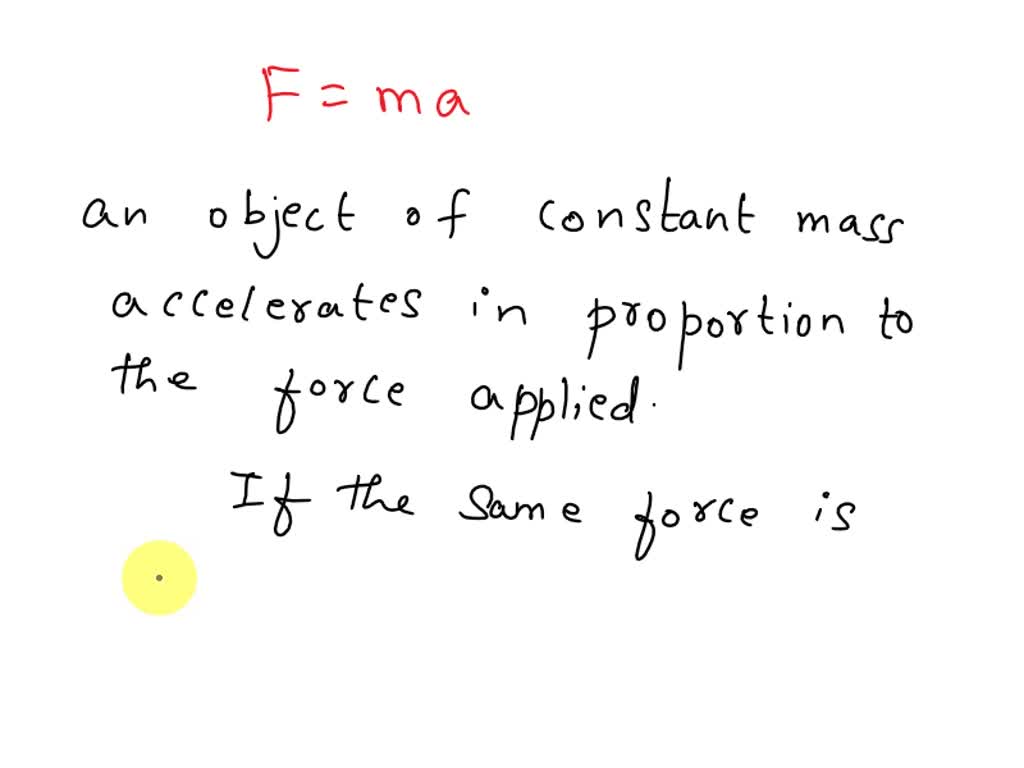 F = ma
an object of constant mass
accelerates in proportion to
the force applied.
If the same force is